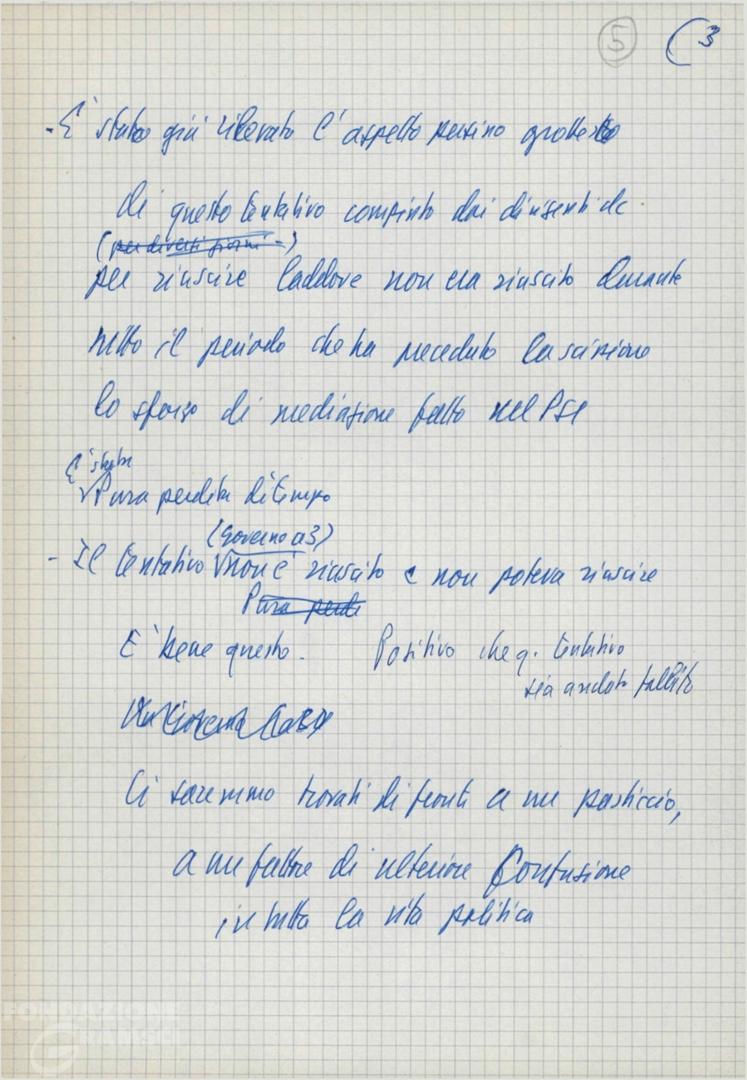 5 (3
- E' stato già rilevato l'aspetto persino grottesco
di questo tentativo compiuto dai dirigenti dc
(per diversi giorni -)
per riuscire laddove non era riuscito durante
tutto il periodo che ha preceduto la scissione
lo sforzo di mediazione fatto nel PSI
E' stata
Pura perdita di tempo
(Governo a 3)
- Il tentativo non è riuscito e non poteva riuscire
Pura perdi
E' bene questo. Positivo che q. tentativo
sia andato fallito
Ci saremmo trovati di fronte a un pasticcio,
a un fattore di ulteriore confusione
in tutta la vita politica
FONDAZIONE
GRAMSCI